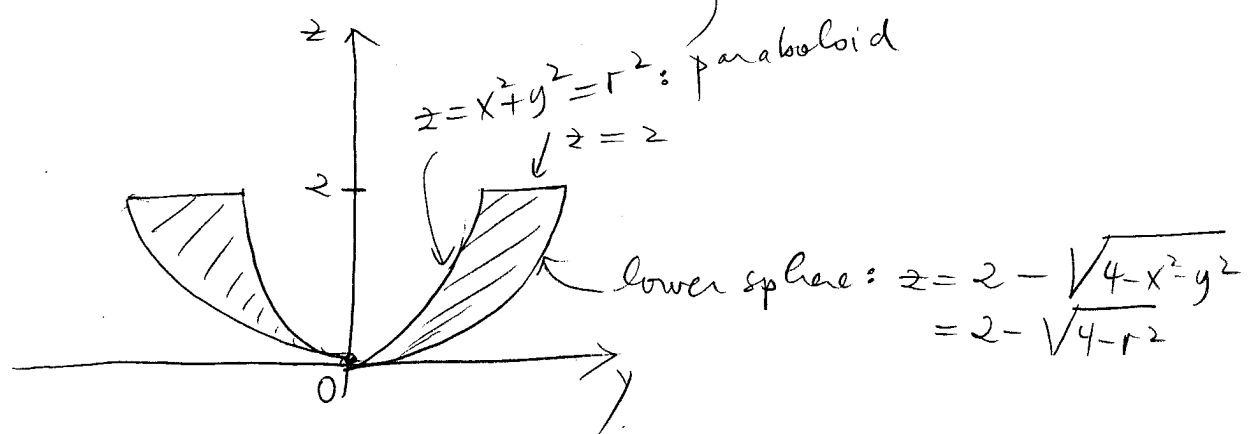 z
z = x² + y² = r² : paraboloid
z = 2
2
lower sphere : z = 2 - √(4-x²-y²)
= 2 - √(4-r²)
0
y